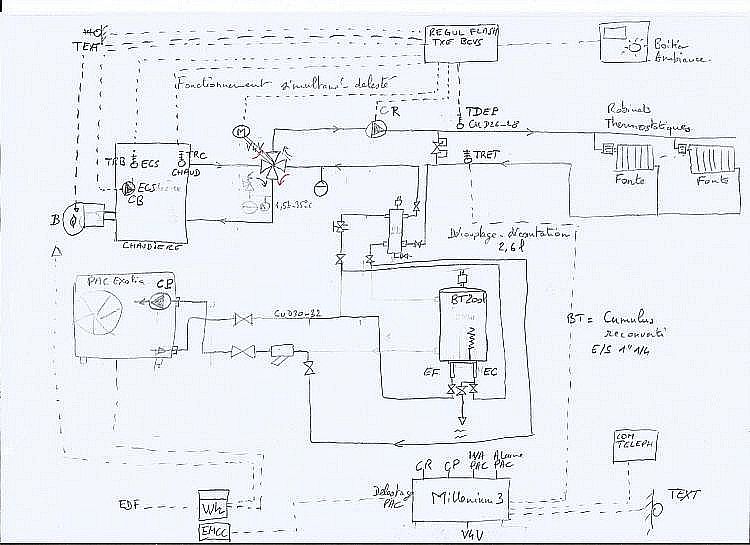 TEXT
REGUL FLASH
TXF BCVS
Boitier
Ambiance
Fonctionnement simultané délesté
CR
TDEP
CuD26-28
Robinets
Thermostatiques
M
V4V
TRB
ECS
TRC
CHAUD
TRET
Fonte
Fonte
ECS
CB
B
1,5b-35°c
CHAUDIERE
Découplage-décantation
2,6l
PAC Exotia
CP
CuD30-32
BT200l
BT = Cumulus
reconverti
E/S 1"1/4
EF
EC
COM
TELEPH
CR
CP
PAC
Alarme
PAC
Délestage
PAC
Millenium 3
TEXT
EDF
Wh
EMCC
V4V